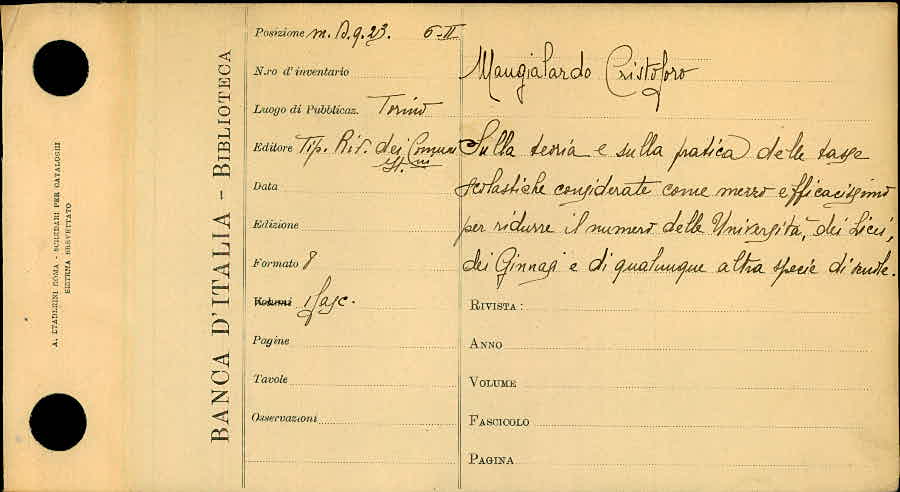 A. STADERINI ROMA - SCHEDARI PER CATALOGHI
SISTEMA BREVETTATO
BANCA D'ITALIA - BIBLIOTECA
Posizione m. D. 9. 23. 6-II
N.ro d'inventario
Luogo di Pubblicaz. Torino
Editore Tip. Riv. dei Comuni
It.ni
Data
Edizione
Formato 8
Volumi 1 fasc.
Pagine
Tavole
Osservazioni
Mangialardo Cristoforo
Sulla teoria e sulla pratica delle tasse
scolastiche considerate come mezzo efficacissimo
per ridurre il numero delle Università, dei Licei,
dei Ginnasi e di qualunque altra specie di scuole.
RIVISTA:
ANNO
VOLUME
FASCICOLO
PAGINA